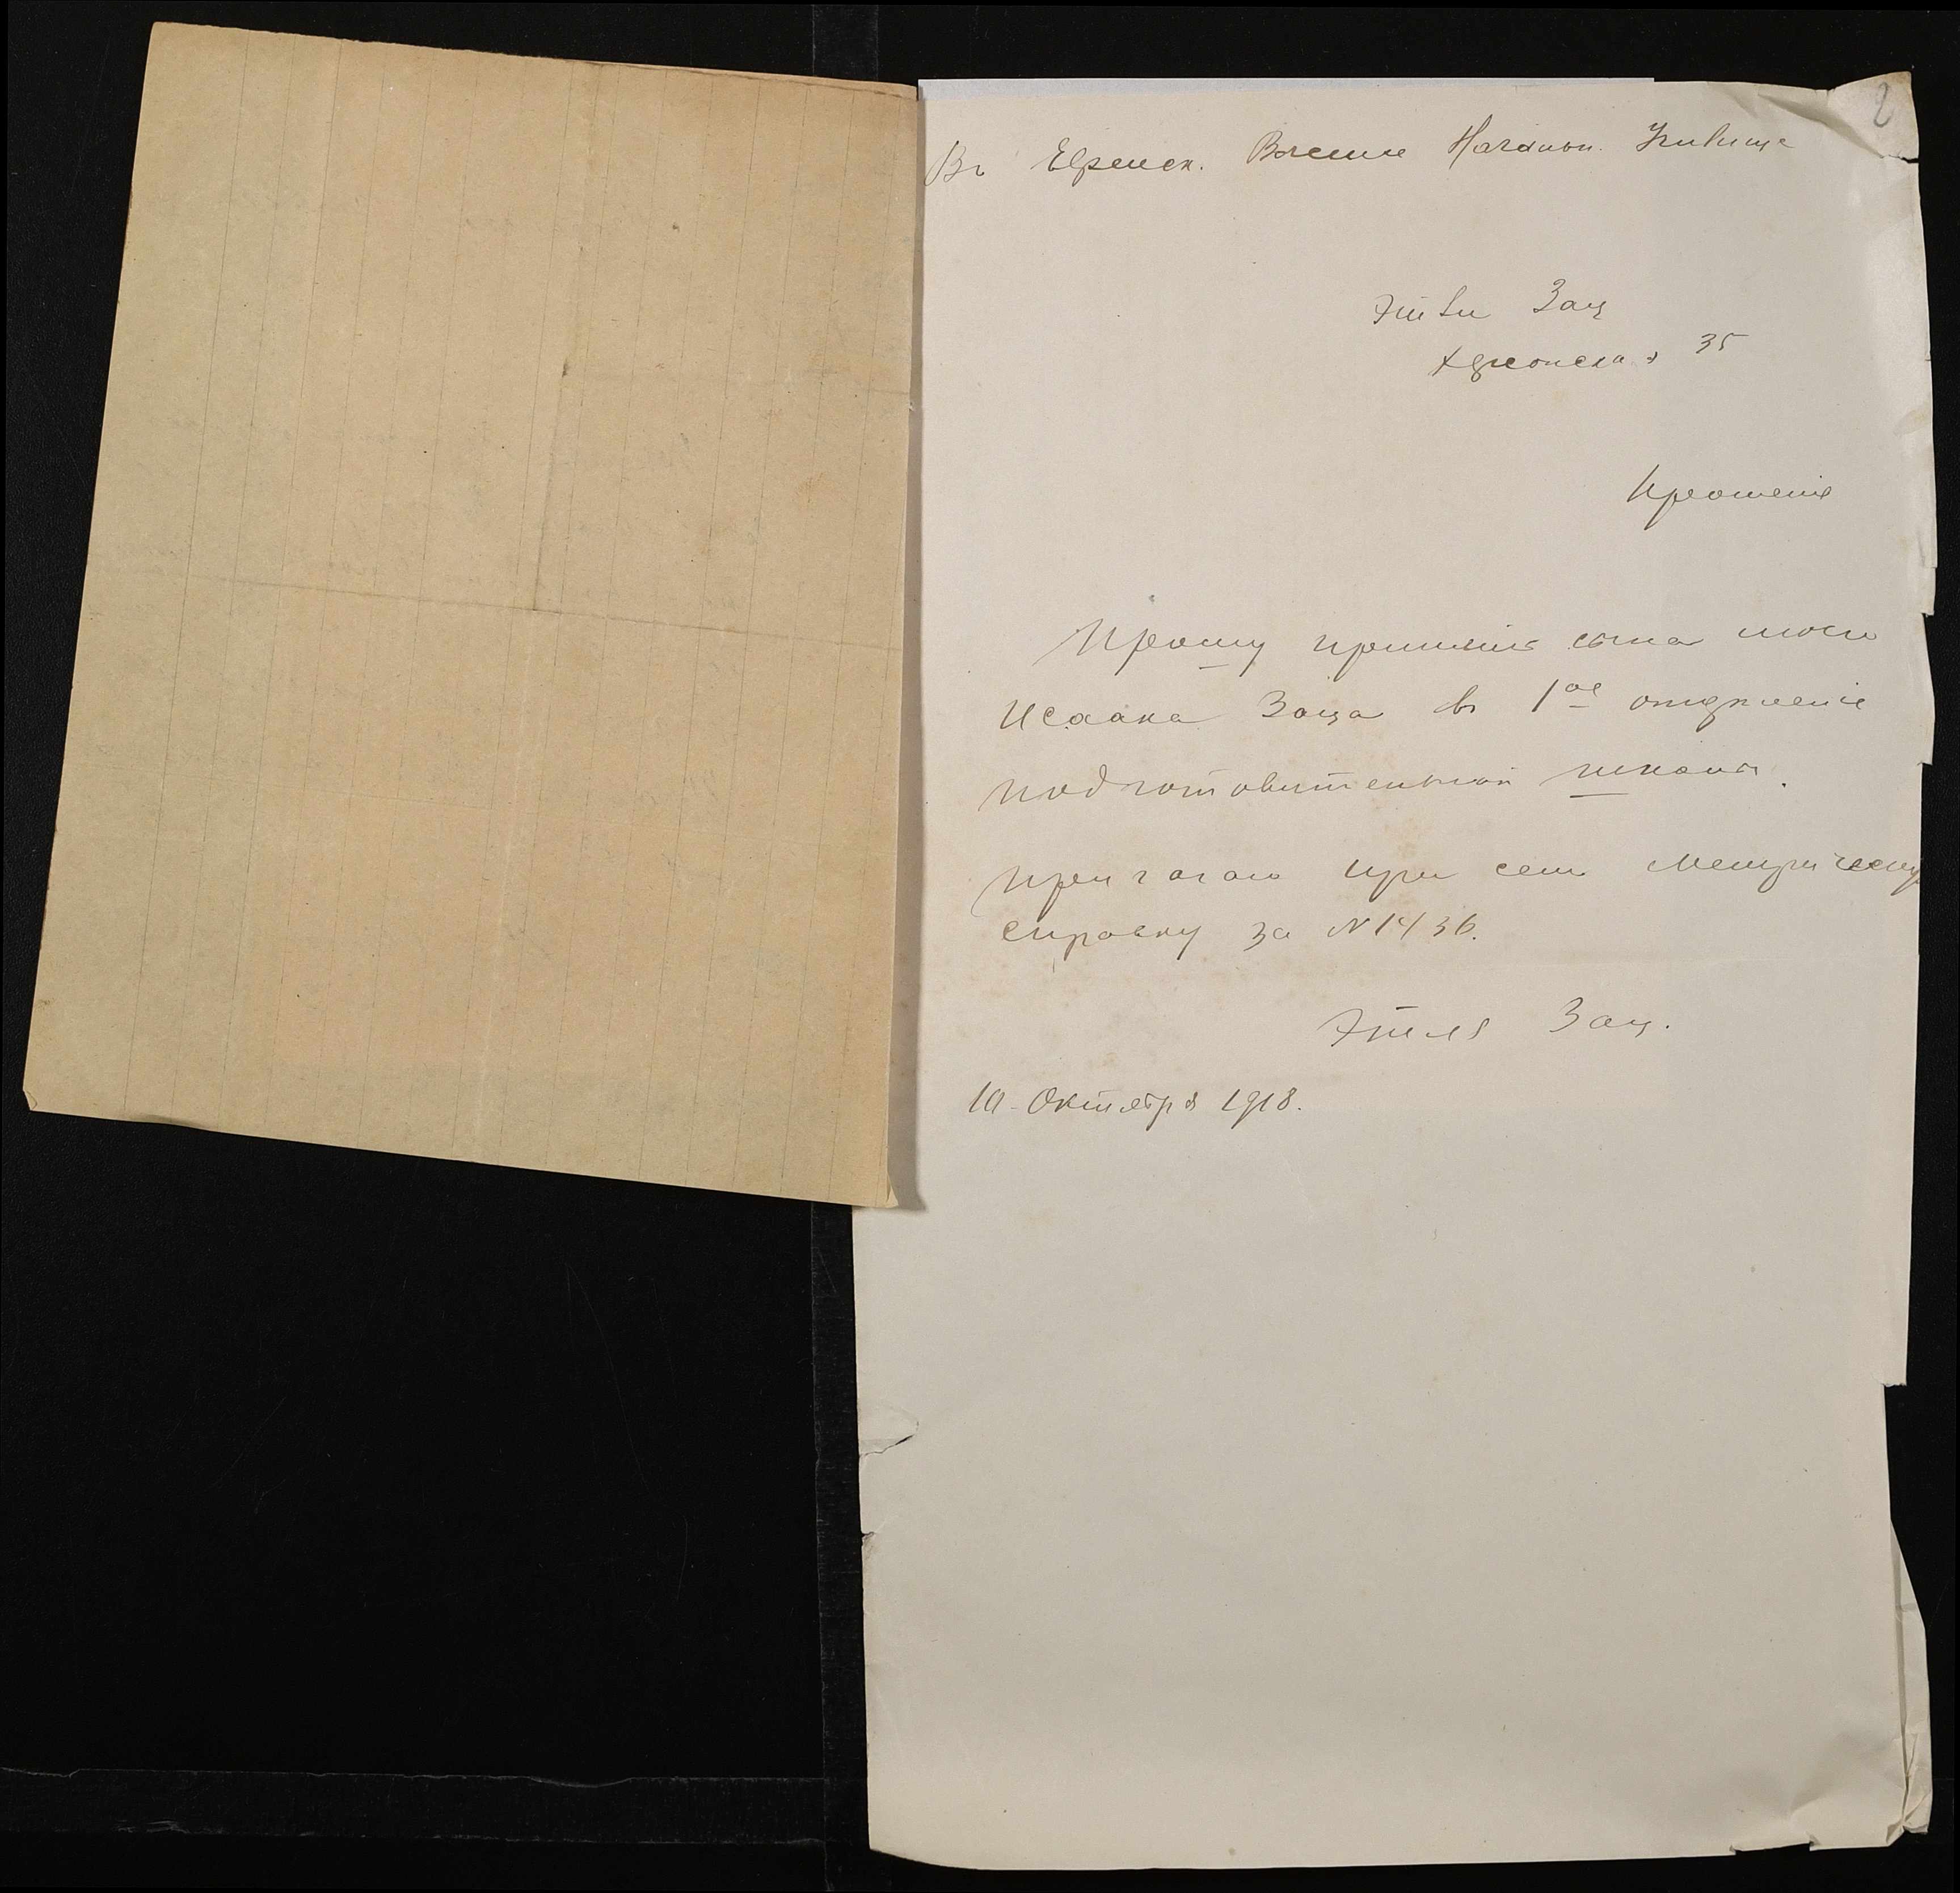 2
Въ Еврейск. Высшее Начальн. Училище
Этли Зац
Херсонская 35
Прошеніе
Прошу принять сына моего
Исаака Заца въ 1ое отдѣленіе
подготовительной школы.
Прилагаю при семъ метрическую
справку за № 1436.
Этля Зац.
10 Октября 1918.